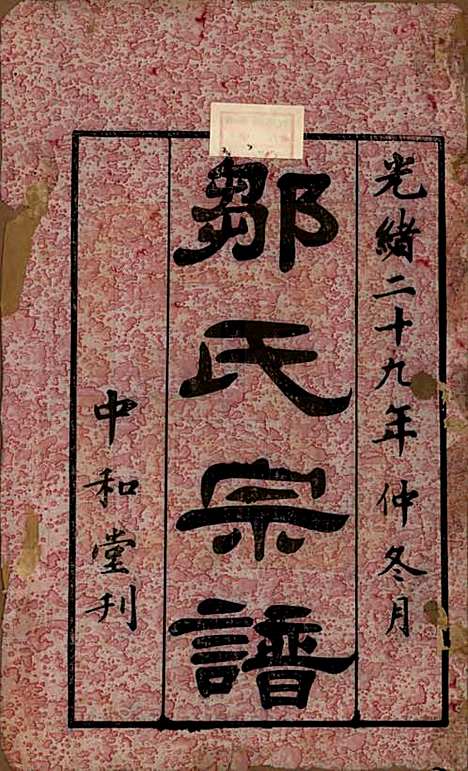 光緒二十九年仲冬月
鄒氏宗譜
中和堂刊